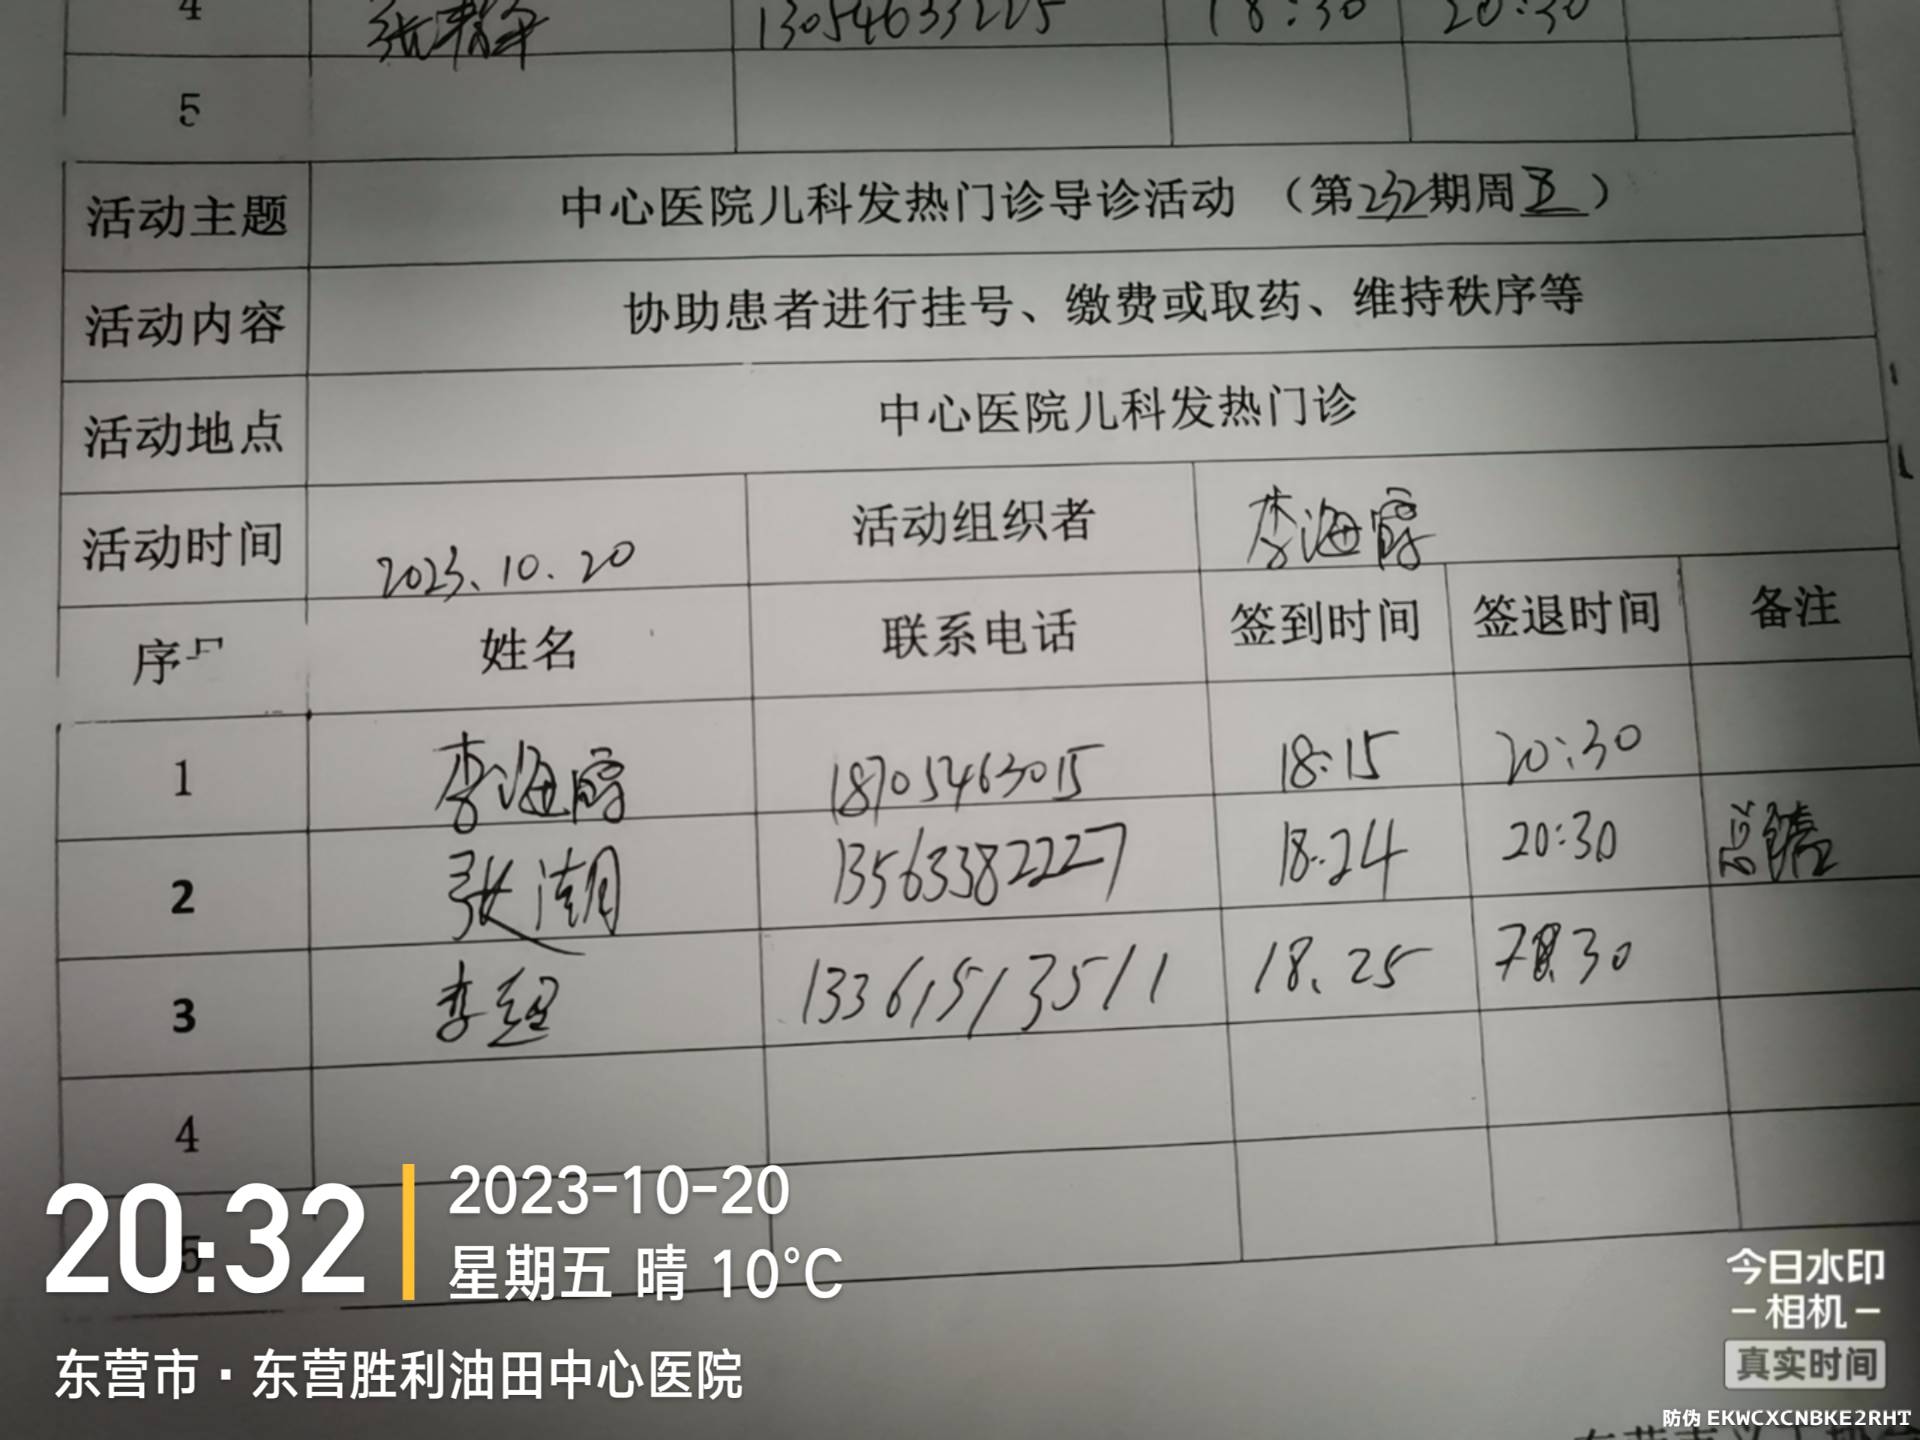 4 13054633225 18:30 20:30
5
活动主题 中心医院儿科发热门诊导诊活动 （第232期周五）
活动内容 协助患者进行挂号、缴费或取药、维持秩序等
活动地点 中心医院儿科发热门诊
活动时间 2023.10.20 活动组织者 李海霞
序号 姓名 联系电话 签到时间 签退时间 备注
1 李海霞 18705463015 18:15 20:30
2 张潮 13563382227 18:24 20:30
3 李超 13361513511 18.25 30
4
5
20:32
2023-10-20
星期五 晴 10°C
东营市·东营胜利油田中心医院
今日水印
-相机-
真实时间
防伪 EKWCXCNBKE2RHT